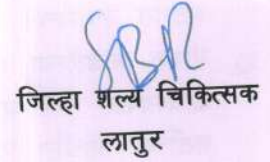 जिल्हा शल्य चिकित्सक
लातुर